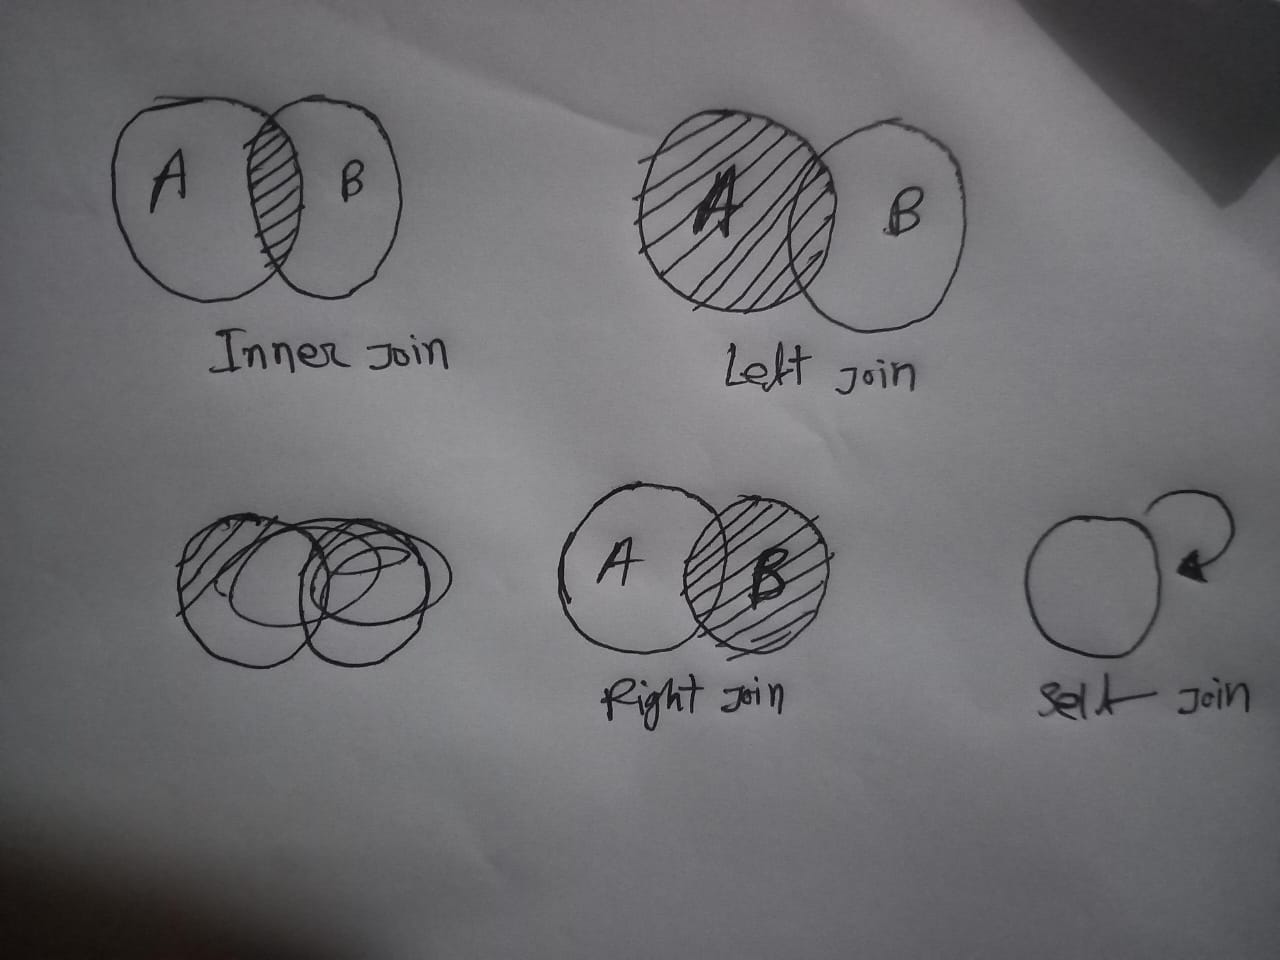 A B
Inner Join
A B
Left Join
A B
Right Join
Self Join